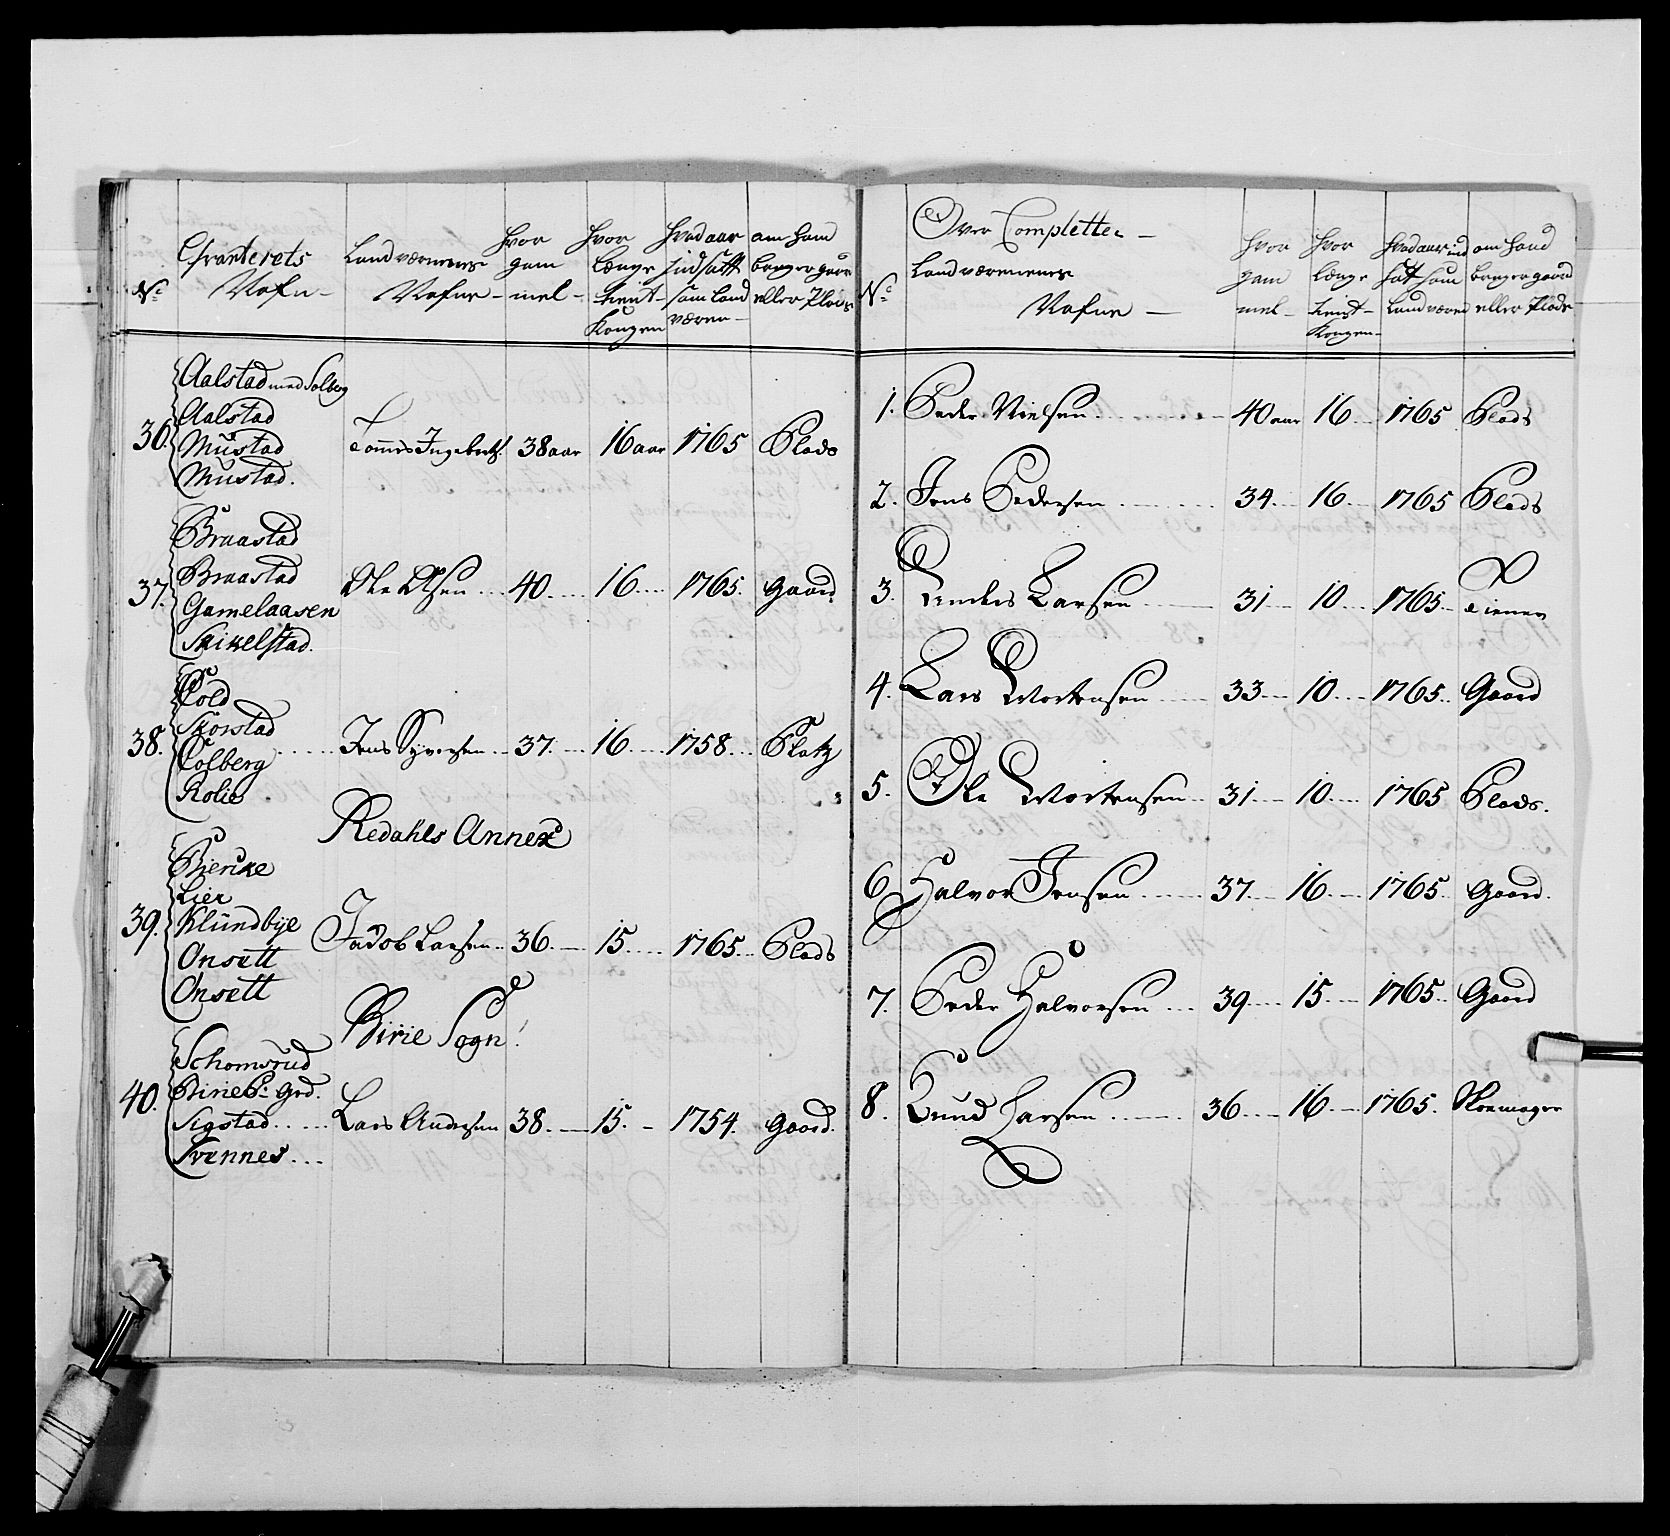 No
Qvarterets Nafn
Landværnenes Nafne
hvor gammel
hvor længe tient Kongen
hvad aar indsatt som land væren
om hand bruger gaard eller Plads
36.
Aalstad med Solberg
Aalstad
Mustad
Mustad.
Tommes Ingebretz. 38 aar 16 aar 1765 Plads
37.
Braastad
Braastad
Gamelaasen
Skikelstad.
Ole Olsen 40 16 1765. gaard
38.
Told
Skorstad
Colberg
Rolie
Jens Syversen 37. 16 1758 Platz
Redahls Annex
39.
Biercke
Lier
Klundbye
Onsett
Onsett
Jacob Larsen 36. 15 1765 Plads
Birie Sogn
40.
Schomsrud
Birie P: grd.
Sigstad
Svennes
Lars Andersen 38. 15. 1754. gaard.
No
Over Complette
Landværnenes Nafne
hvor gammel
hvor længe tient Kongen
hvad aar ind satt som Landværen
om hand bruger gaard eller Plads
1. Peder Nielsen 40 aar 16 1765 Plads
2. Jens Pedersen 34. 16 1765 Plads
3. Anders Larsen 31 10 1765 Tiener
4. Lars Mortensen 33 10 1765 Gaard
5. Ole Mortensen 31 10 1765 Plads.
6 Halvor Jensen 37. 16 1765. Gaard.
7. Peder Halvorsen 39 15 1765 Gaard
8. Knud Larsen 36 16 1765. Skoemager